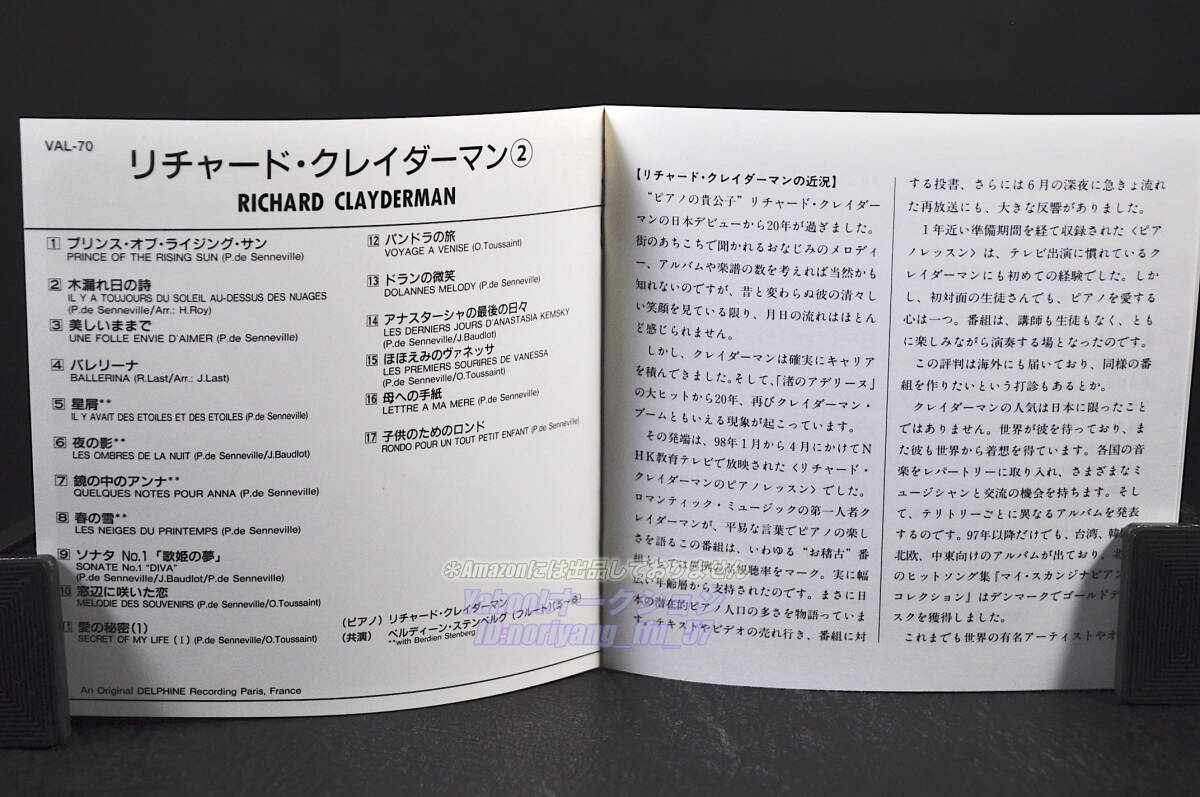 VAL-70
リチャード・クレイダーマン②
RICHARD CLAYDERMAN
1 プリンス・オブ・ライジング・サン
PRINCE OF THE RISING SUN (P.de Senneville)
2 木漏れ日の詩
IL Y A TOUJOURS DU SOLEIL AU-DESSUS DES NUAGES
(P.de Senneville/Arr.: H.Roy)
3 美しいままで
UNE FOLLE ENVIE D'AIMER (P.de Senneville)
4 バレリーナ
BALLERINA (R.Last/Arr.: J.Last)
5 星屑**
IL Y AVAIT DES ETOILES ET DES ETOILES (P.de Senneville)
6 夜の影**
LES OMBRES DE LA NUIT (P.de Senneville/J.Baudlot)
7 鏡の中のアンナ**
QUELQUES NOTES POUR ANNA (P.de Senneville)
8 春の雪**
LES NEIGES DU PRINTEMPS (P.de Senneville)
9 ソナタ No.1「歌姫の夢」
SONATE No.1 "DIVA"
(P.de Senneville/J.Baudlot/P.de Senneville)
10 窓辺に咲いた恋
MELODIE DES SOUVENIRS (P.de Senneville/O.Toussaint)
11 愛の秘密(1)
SECRET OF MY LIFE (I) (P.de Senneville/O.Toussaint)
An Original DELPHINE Recording Paris, France
12 パンドラの旅
VOYAGE A VENISE (O.Toussaint)
13 ドランの微笑
DOLANNES MELODY (P.de Senneville)
14 アナスターシャの最後の日々
LES DERNIERS JOURS D'ANASTASIA KEMSKY
(P.de Senneville/J.Baudlot)
15 ほほえみのヴァネッサ
LES PREMIERS SOURIRES DE VANESSA
(P.de Senneville/O.Toussaint)
16 母への手紙
LETTRE A MA MERE (P.de Senneville)
17 子供のためのロンド
RONDO POUR UN TOUT PETIT ENFANT (P.de Senneville)
(ピアノ) リチャード・クレイダーマン
(共演) ベルディーン・ステンベルグ (フルート) (5〜8)
**with Berdien Stenberg
【リチャード・クレイダーマンの近況】
“ピアノの貴公子”リチャード・クレイダー
マンの日本デビューから20年が過ぎました。
街のあちこちで聞かれるおなじみのメロディ
ー、アルバムや楽譜の数を考えれば当然かも
知れないのですが、昔と変わらぬ彼の清々し
い笑顔を見ている限り、月日の流れはほとん
ど感じられません。
しかし、クレイダーマンは確実にキャリア
を積んできました。そして、「渚のアデリーヌ」
の大ヒットから20年、再びクレイダーマン・
ブームともいえる現象が起こっています。
その発端は、98年1月から4月にかけてN
HK教育テレビで放映された〈リチャード・
クレイダーマンのピアノレッスン〉でした。
ロマンティック・ミュージックの第一人者ク
レイダーマンが、平易な言葉でピアノの楽し
さを語るこの番組は、いわゆる“お稽古”番
組としては異例の高視聴率をマーク。実に幅
広い年齢層から支持されたのです。まさに日
本の潜在的ピアノ人口の多さを物語っていま
す。テキストやビデオの売れ行き、番組に対
する投書、さらには6月の深夜に急きょ流れ
た再放送にも、大きな反響がありました。
1年近い準備期間を経て収録された〈ピア
ノレッスン〉は、テレビ出演に慣れているク
レイダーマンにも初めての経験でした。しか
し、初対面の生徒さんでも、ピアノを愛する
心は一つ。番組は、講師も生徒もなく、とも
に楽しみながら演奏する場となったのです。
この評判は海外にも届いており、同様の番
組を作りたいという打診もあるとか。
クレイダーマンの人気は日本に限ったこと
ではありません。世界が彼を待っており、ま
た彼も世界から着想を得ています。各国の音
楽をレパートリーに取り入れ、さまざまなミ
ュージシャンと交流の機会を持ちます。そし
て、テリトリーごとに異なるアルバムを発表
するのです。97年以降だけでも、台湾、韓
北欧、中東向けのアルバムが出ており、北
のヒットソング集『マイ・スカンジナビアン
コレクション』はデンマークでゴールドデ
スクを獲得しました。
これまでも世界の有名アーティストやオ
＊Amazonには出品しておりません
Yahoo!オークション
ID:noriyang_tfij_37